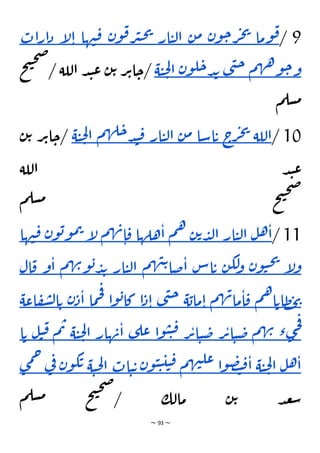 9 / قوما يخرجون من النار يحترقون فيها إلا دارات
وجوههم حتى يدخلون الجنة/جابر بن عبد الله / صحيح
مسلم
10 / الله يخرج ناسا من النار فيدخلهم الجنة/جابر بن
عبد الله صحيح مسلم
11/ أهل النار الذين هم أهلها فإنهم لا يموتون فيها
ولا يحيون ولكن ناس أصابتهم النار بذنوبهم أو قال
بخطاياهم فأماتهم إماتة حتى إذا كانوا فحما أذن بالشفاعة
فجيء بهم ضبائر ضبائر فبثوا على أنهار الجنة ثم قيل يا
أهل الجنة أفيضوا عليهم فينبتون نبات الجنة تكون في حمي
سعد بن مالك / صحيح مسلم
~ 93 ~